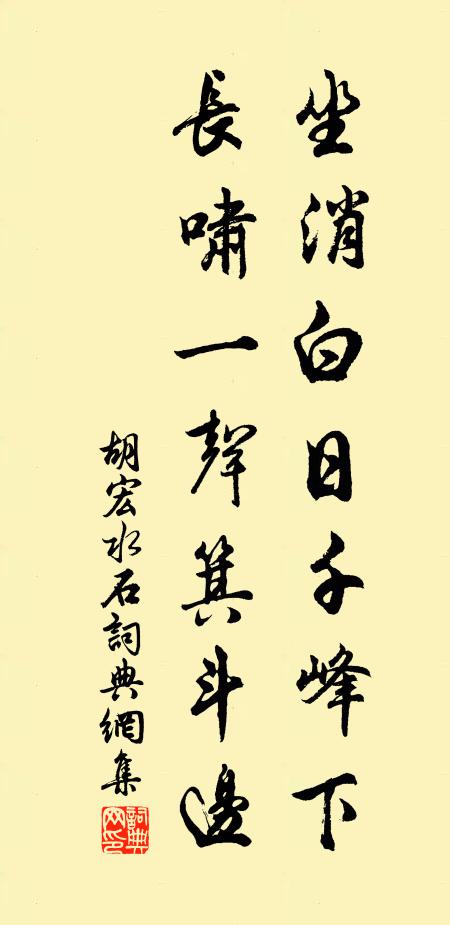 坐消白日千峰下
長嘯一聲箕斗邊
胡宏水石詞典網集
詞典網印